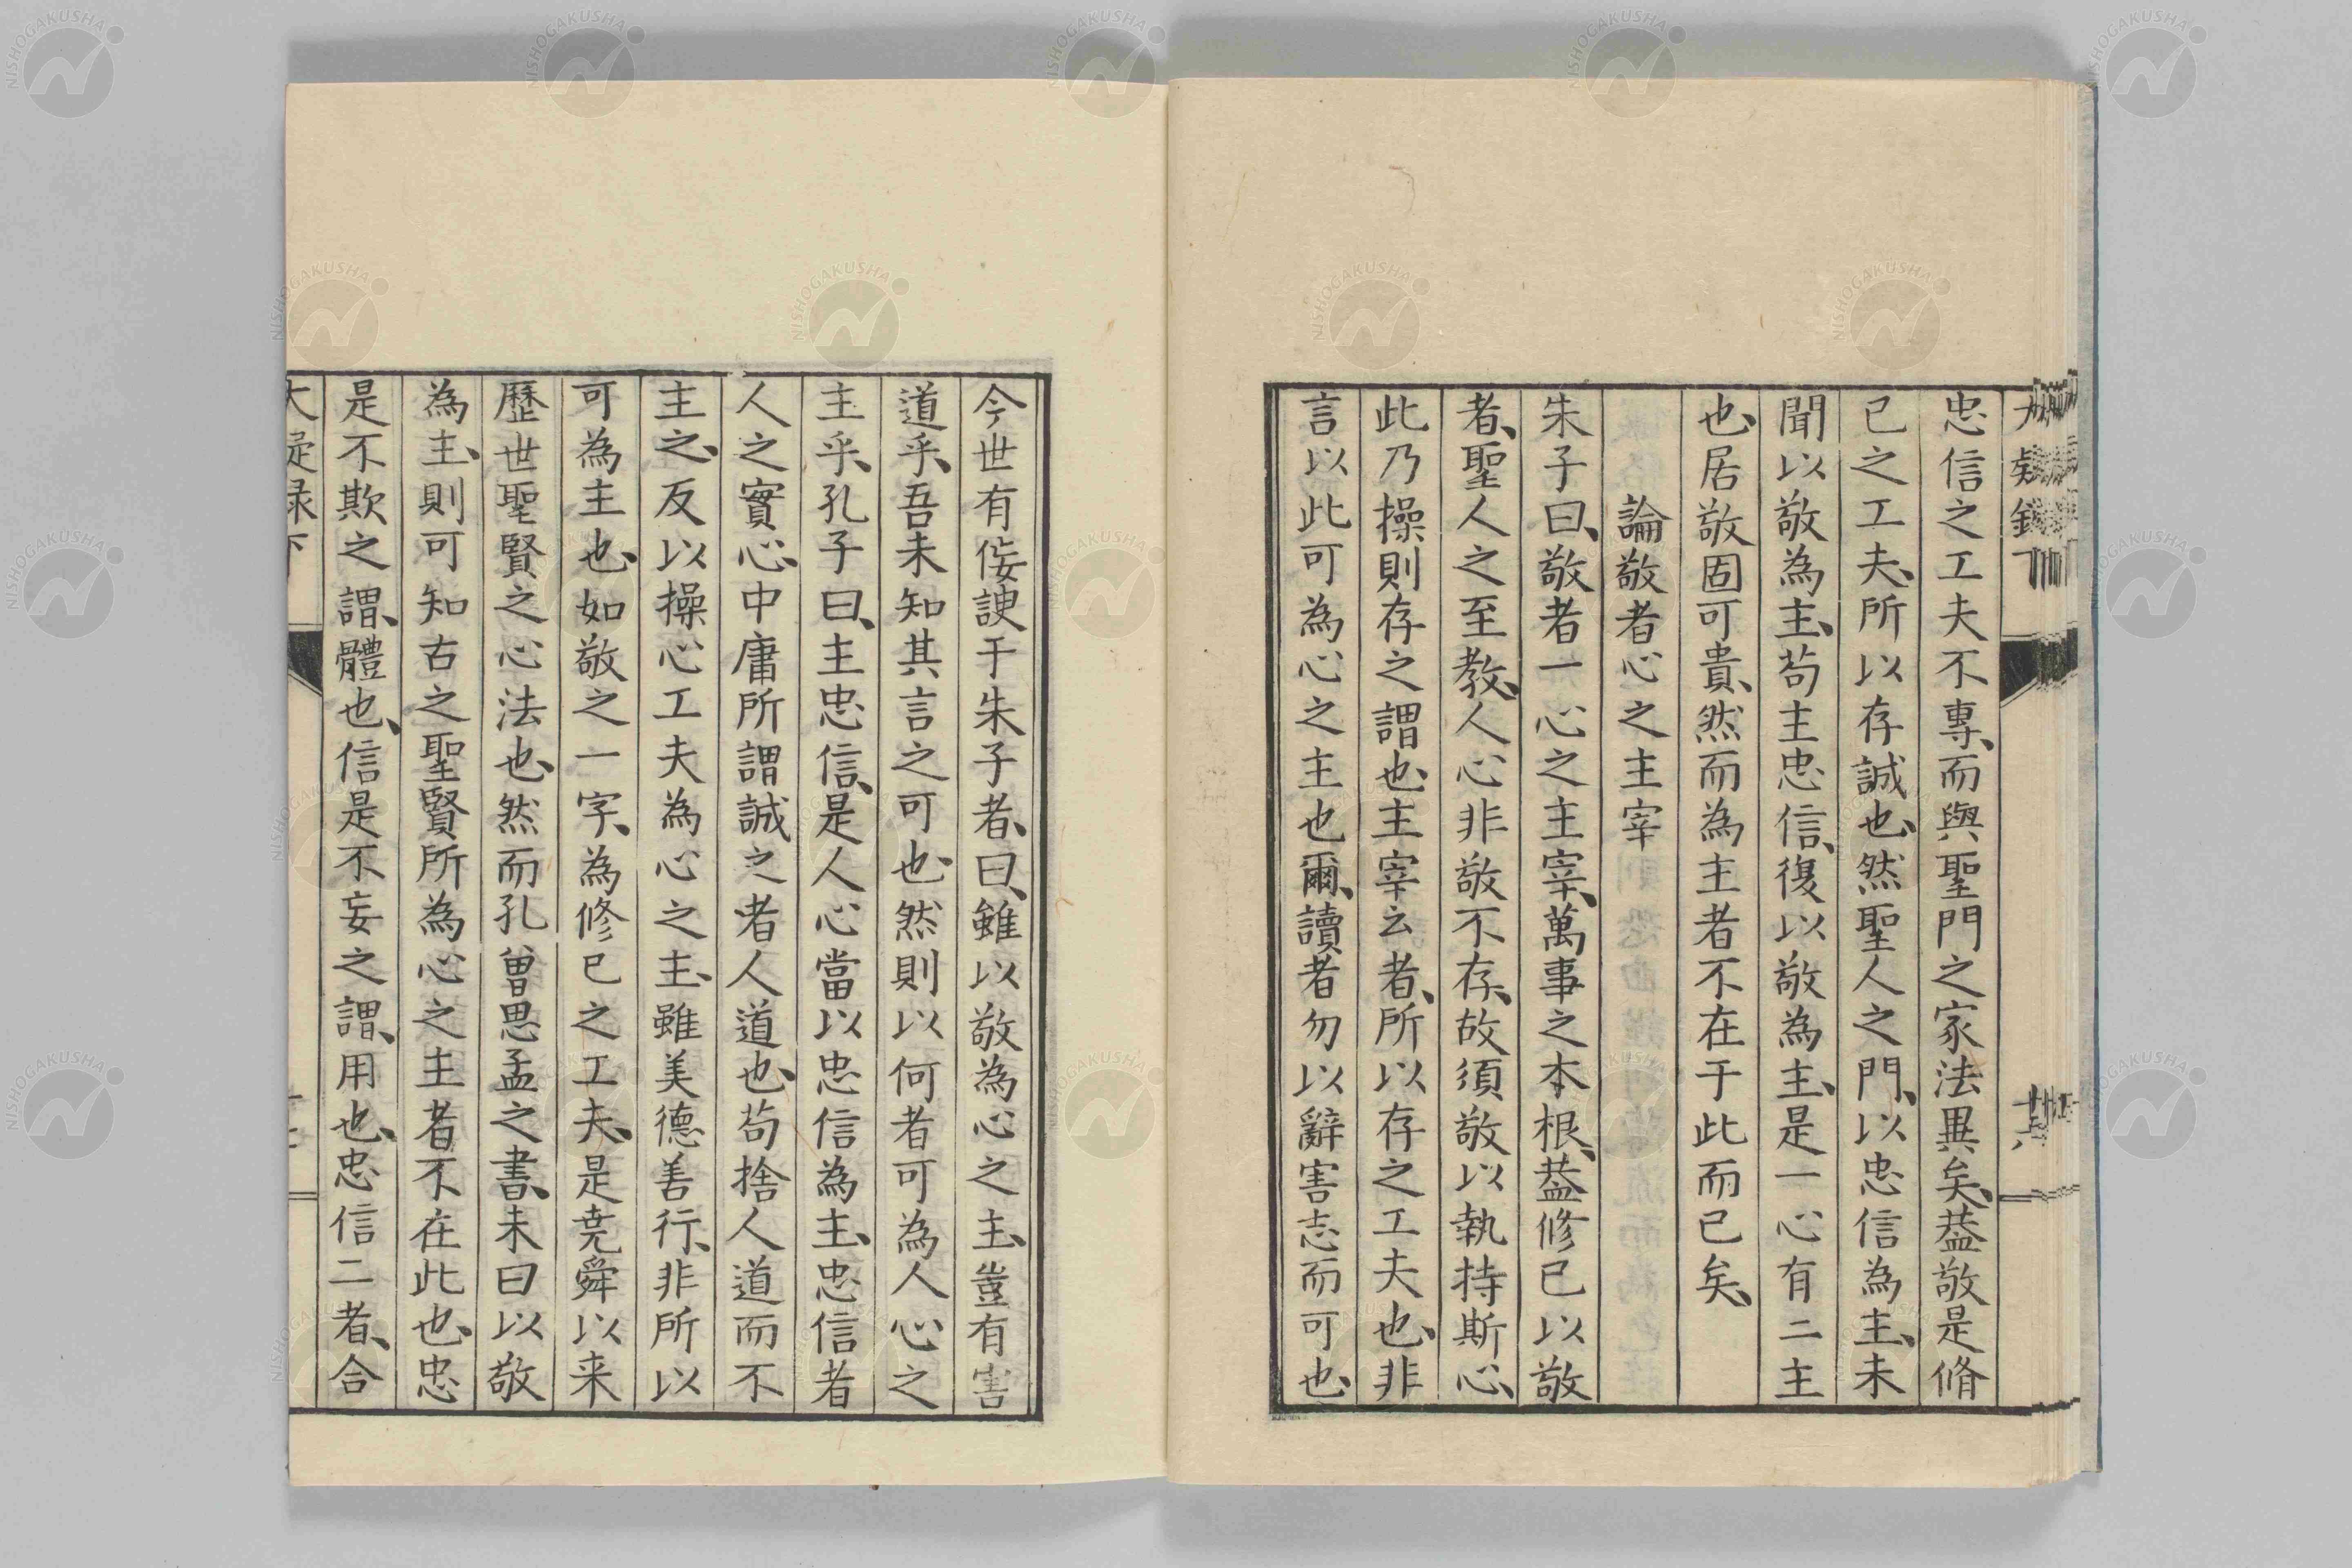 忠信之工夫不專、而與聖門之家法異矣、葢敬是脩
己之工夫、所以存誠也、然聖人之門、以忠信為主、未
聞以敬為主、茍主忠信、復以敬為主、是一心有二主
也、居敬固可貴、然而為主者不在于此而已矣、
論敬者心之主宰
朱子曰、敬者一心之主宰、萬事之本根、葢修已以敬
者、聖人之至教、人心非敬不存、故須敬以執持斯心、
此乃操則存之謂也、主宰云者、所以存之工夫也、非
言以此可為心之主也爾、讀者勿以辭害志而可也、
今世有侫諛于朱子者、曰、雖以敬為心之主、豈有害
道乎、吾未知其言之可也、然則以何者可為人心之
主乎、孔子曰、主忠信、是人心當以忠信為主、忠信者
人之實心、中庸所謂誠之者人道也、茍捨人道而不
主之、反以操心工夫為心之主、雖美德善行、非所以
可為主也、如敬之一字、為修已之工夫、是尭舜以来
歷世聖賢之心法也、然而孔曽思孟之書、未曰以敬
為主、則可知古之聖賢所為心之主者不在此也、忠
是不欺之謂、體也、信是不妄之謂、用也、忠信二者、合
大疑録下
NISHOGAKUSHA